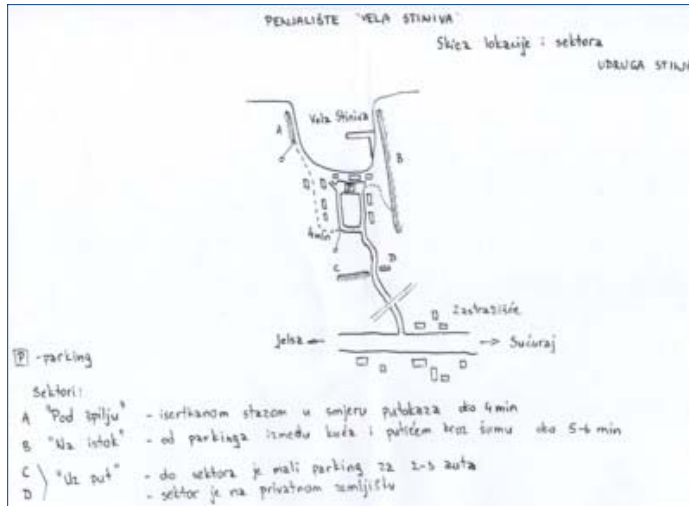 PENJALIŠTE "VELA STINIVA"
Skica lokacije i sektora
UDRUGA STINI
A
Vela Stiniva
B
4 min
C
D
Zastražišće
Jelsa
Sućuraj
P - parking
Sektori:
A "Pod špilju" - iscrtkanom stazom u smjeru putokaza oko 4 min
B "Na istok" - od parkinga između kuća i putićem kroz šumu oko 5-6 min
C "Uz put" - do sektora je mali parking za 2-3 auta
D - sektor je na privatnom zemljištu